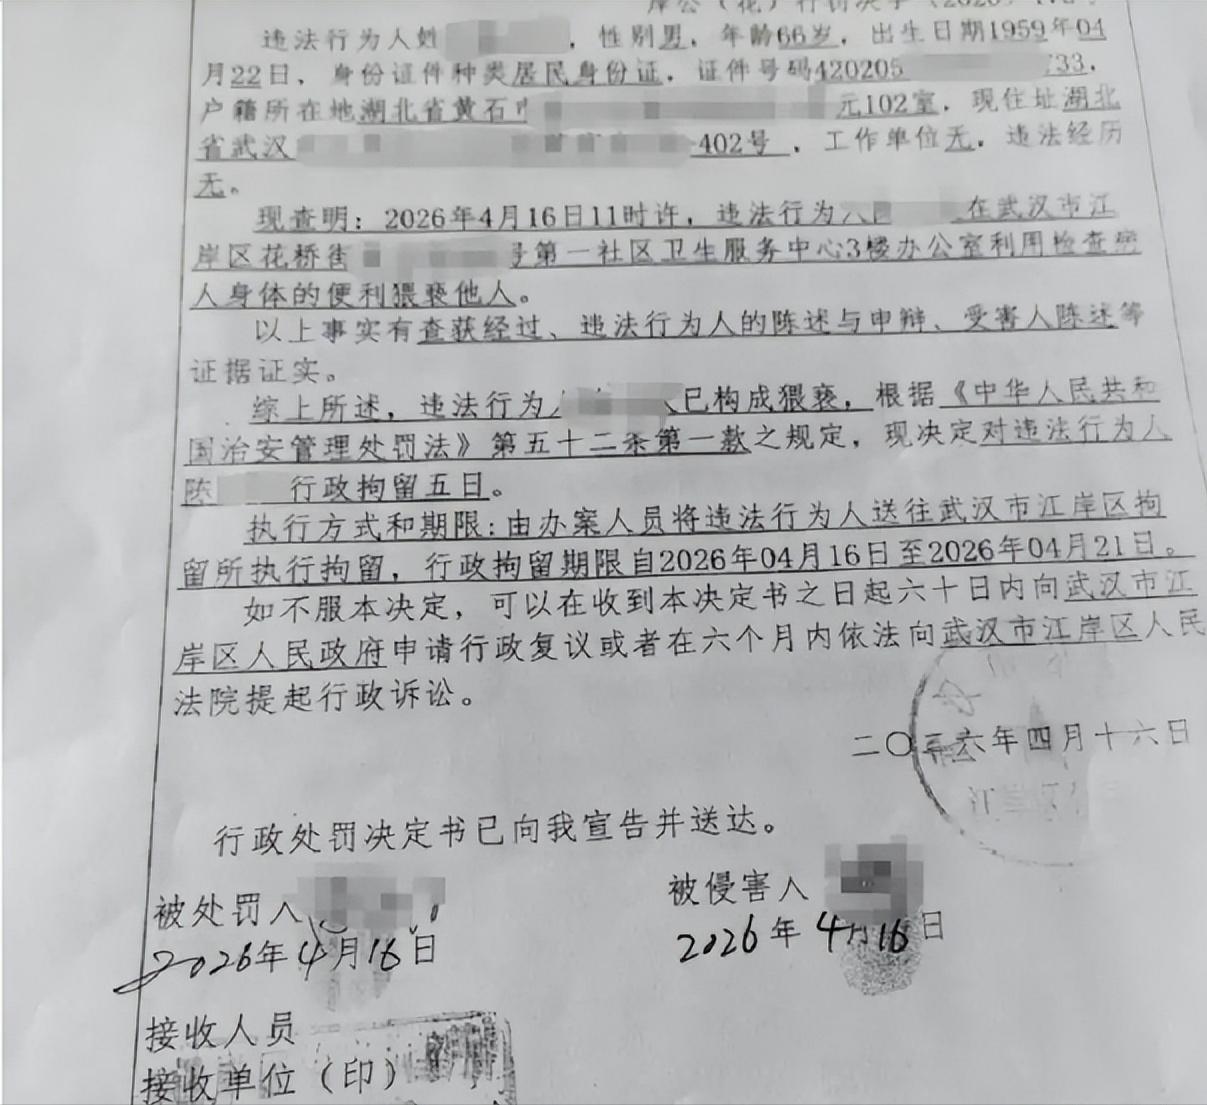 违法行为人姓 ，性别男，年龄66岁，出生日期1959年04
月22日，身份证件种类居民身份证，证件号码420205 733，
户籍所在地湖北省黄石 元102室，现住址湖北
省武汉 402号 ，工作单位无，违法经历
无。
现查明：2026年4月16日11时许，违法行为人 在武汉市江
岸区花桥街 号第一社区卫生服务中心3楼办公室利用检查病
人身体的便利猥亵他人。
以上事实有查获经过、违法行为人的陈述与申辩、受害人陈述等
证据证实。
综上所述，违法行为人 已构成猥亵，根据《中华人民共和
国治安管理处罚法》第五十二条第一款之规定，现决定对违法行为人
陈 行政拘留五日。
执行方式和期限：由办案人员将违法行为人送往武汉市江岸区拘
留所执行拘留，行政拘留期限自2026年04月16日至2026年04月21日。
如不服本决定，可以在收到本决定书之日起六十日内向武汉市江
岸区人民政府申请行政复议或者在六个月内依法向武汉市江岸区人民
法院提起行政诉讼。
二〇二六年四月十六日
行政处罚决定书已向我宣告并送达。
被处罚人
2026年4月16日
被侵害人
2026年4月16日
接收人员
接收单位（印）